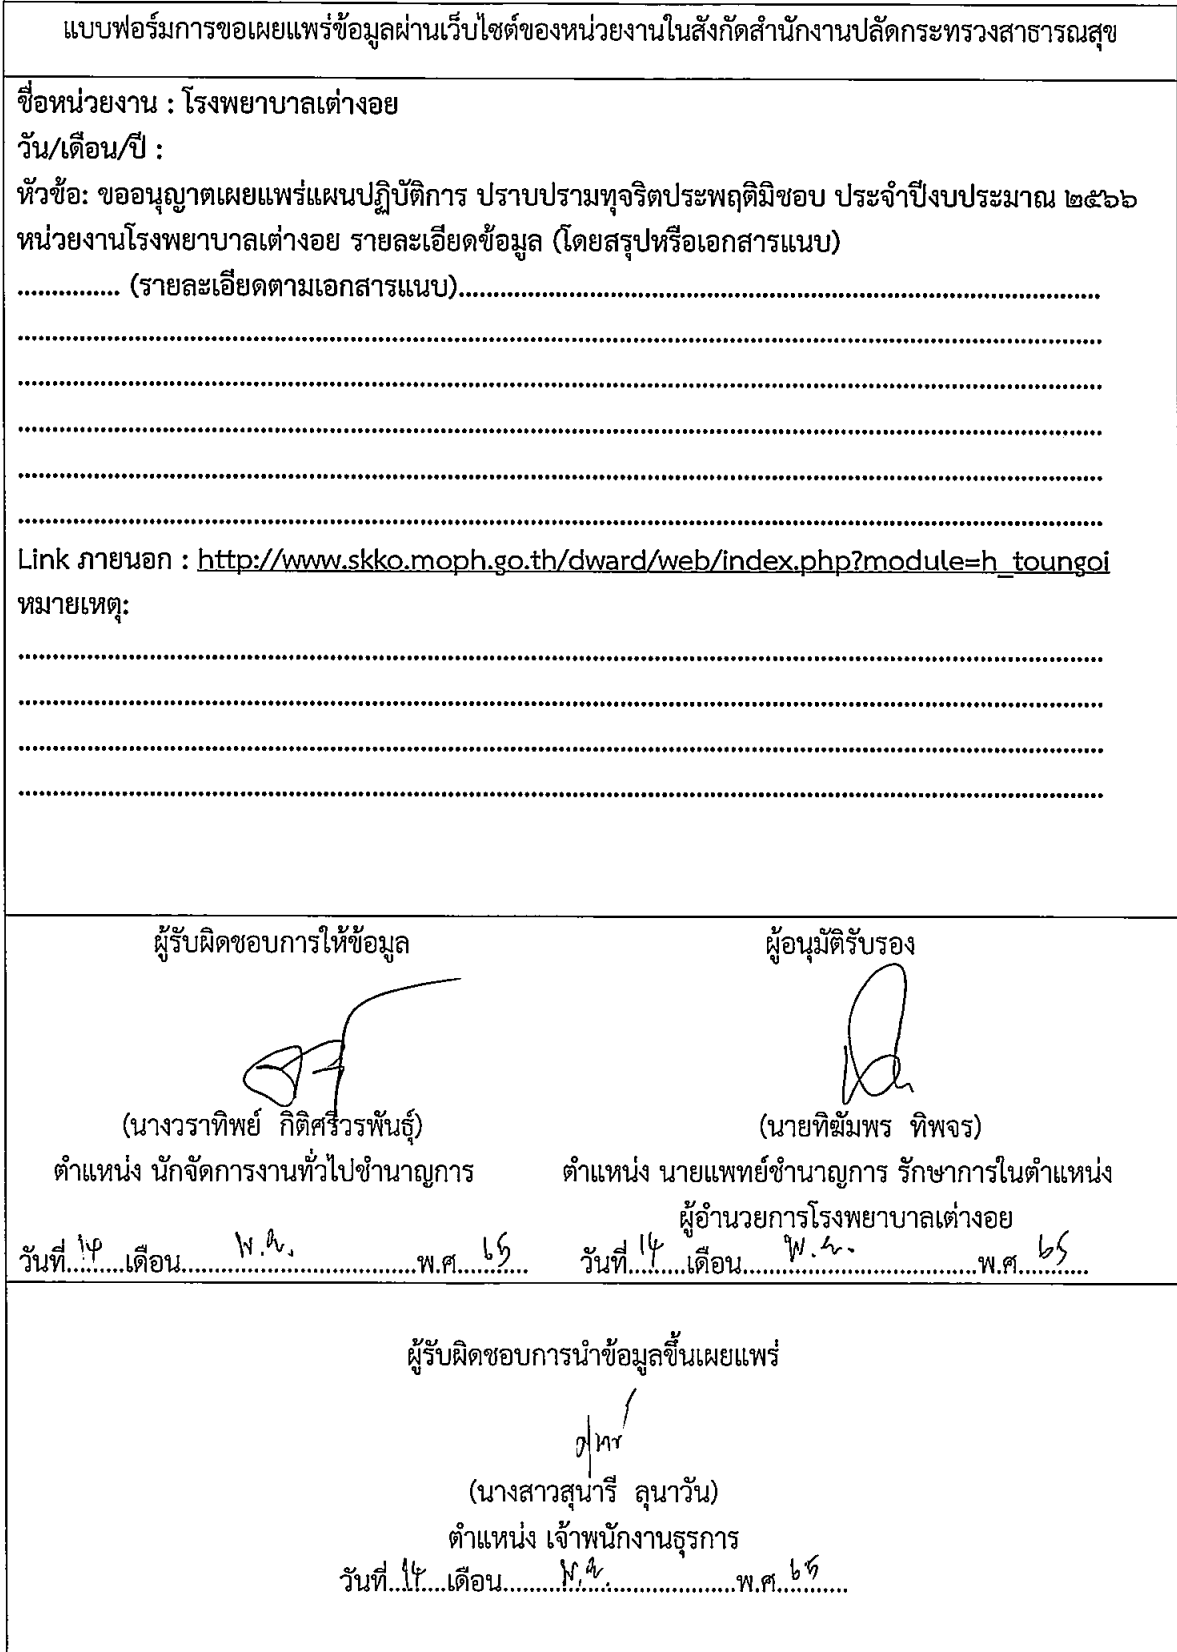 แบบฟอร์มการขอเผยแพร่ข้อมูลผ่านเว็บไซต์ของหน่วยงานในสังกัดสำนักงานปลัดกระทรวงสาธารณสุข
ชื่อหน่วยงาน : โรงพยาบาลเต่างอย
วัน/เดือน/ปี :
หัวข้อ: ขออนุญาตเผยแพร่แผนปฏิบัติการ ปราบปรามทุจริตประพฤติมิชอบ ประจำปีงบประมาณ ๒๕๖๖
หน่วยงานโรงพยาบาลเต่างอย รายละเอียดข้อมูล (โดยสรุปหรือเอกสารแนบ)
............... (รายละเอียดตามเอกสารแนบ)...............
Link ภายนอก : http://www.skko.moph.go.th/dward/web/index.php?module=h_toungoi
หมายเหตุ:
ผู้รับผิดชอบการให้ข้อมูล ผู้อนุมัติรับรอง
(นางวราทิพย์ กิติศรีวรพันธุ์) (นายทิฆัมพร ทิพจร)
ตำแหน่ง นักจัดการงานทั่วไปชำนาญการ ตำแหน่ง นายแพทย์ชำนาญการ รักษาการในตำแหน่ง
ผู้อำนวยการโรงพยาบาลเต่างอย
วันที่ 14 เดือน พ.ย. พ.ศ. 65 วันที่ 14 เดือน พ.ย. พ.ศ. 65
ผู้รับผิดชอบการนำข้อมูลขึ้นเผยแพร่
(นางสาวสุนารี ลุนาวัน)
ตำแหน่ง เจ้าพนักงานธุรการ
วันที่ 14 เดือน พ.ย. พ.ศ. 65